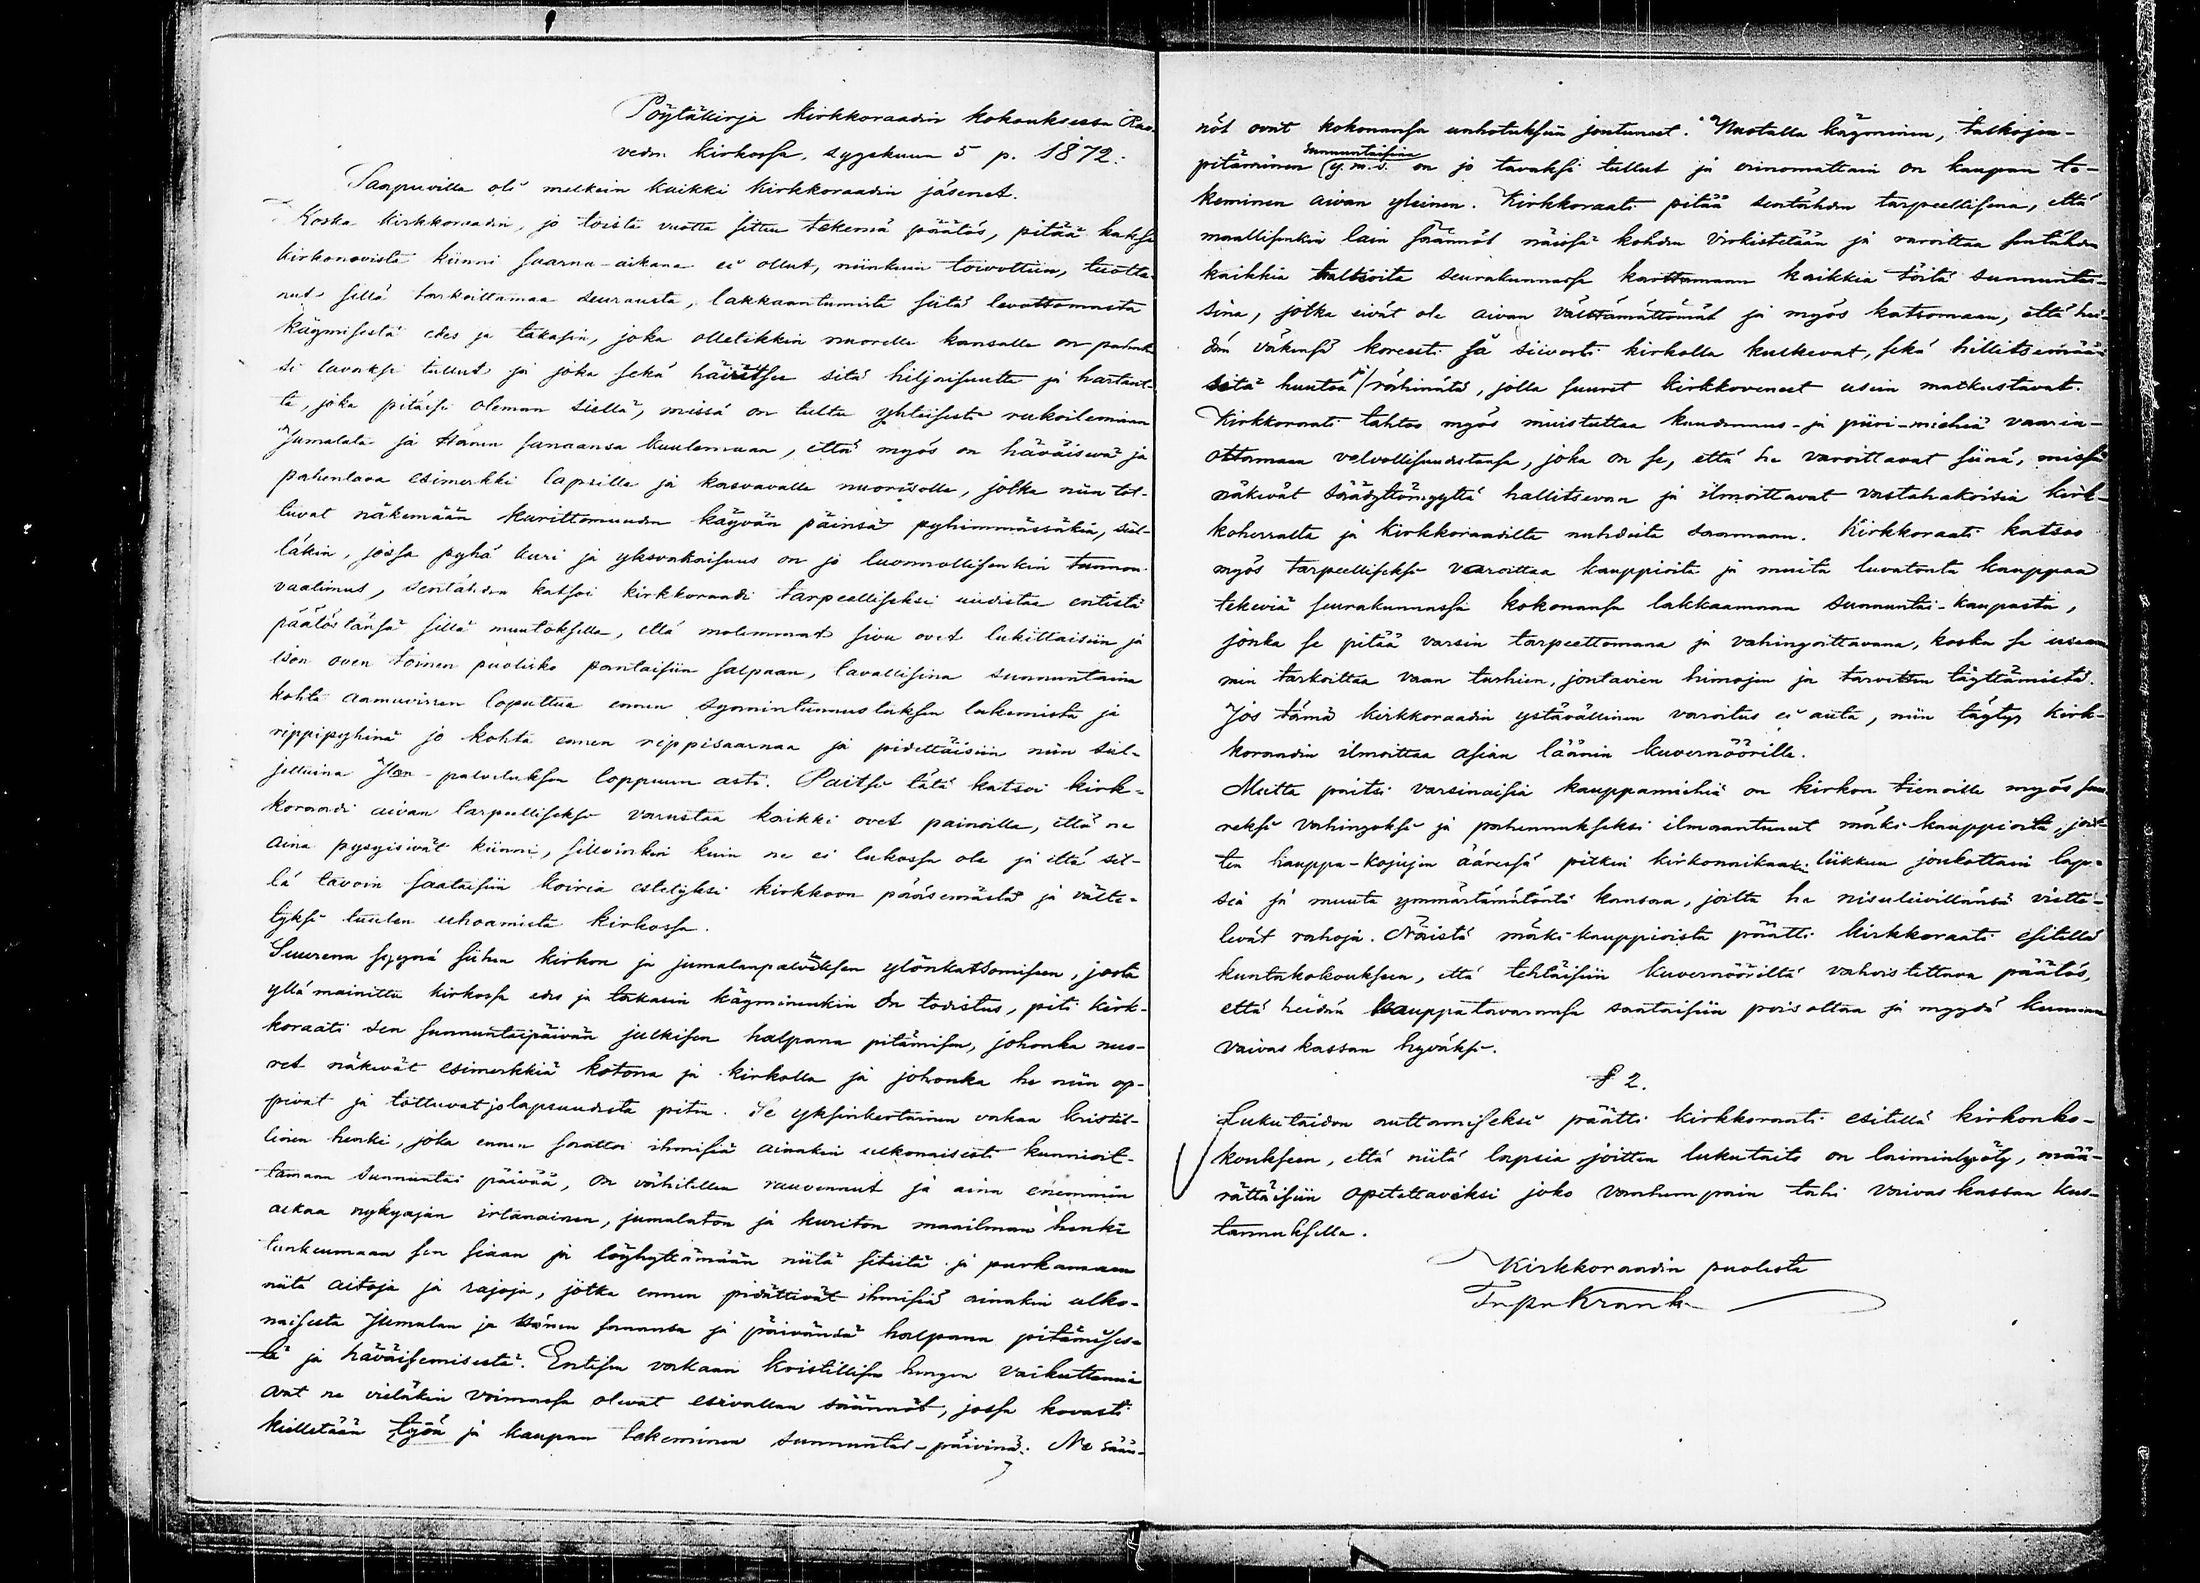 Pöytäkirja kirkkoraadin kokouksessa Rau-
veden kirkossa, syyskuun 5 p. 1872.
Saapuvilla oli melkein kaikki kirkkoraadin jäsenet.
Koska kirkkoraadin, jo toista vuotta sitten tekemä päätös, pitää kaksi
kirkonovista kiinni saarna-aikana ei ollut, niinkuin toivottiin, tuotta-
nut sillä tarkoittamaa seurausta, lakkaantumista siitä levottomasta
käymisestä edes ja takasin, joka ollelikkin nuorelle kansalle on
si tavaksi tullut ja joka sekä häiritsee sitä hiljaisuutta ja hartaut-
ta, joka pitäisi oleman siellä, missä on tultu yhteisesti rukoilemaan
Jumalata ja Hänen sanaansa kuulemaan, että myös on häväisevä ja
pahentava esimerkki lapsille ja kasvavalle nuorisolle, jotka niin tot-
tuvat näkemään kurittomuuden käyvän päinsä pyhimmässäkin, siel-
läkin, jossa pyhä kuri ja yksvakaisuus on jo luonnollisenkin tunnon
vaatimus, sentähden katsoi kirkkoraadi tarpeelliseksi uudistaa entistä
päätöstänsä sillä muutoksella, että molemmat sivu ovet lukittaisiin ja
ison oven toinen puolisko pantaisiin salpaan, tavallisina sunnuntaina
kohta aamuvirren loputtua ennen synnintunnustuksen lukemista ja
rippipyhinä jo kohta ennen rippisaarnaa ja pidettäisiin niin sul-
jettuina Jlan-palveluksen loppuun asti. Paitsi tätä katsoi kirk-
koraadi aivan tarpeelliseksi varustaa kaikki ovet painoilla, että ne
aina pysyisivät kiinni, silloinkin kuin ne ei lukossa ole ja että sil-
lä tavoin saataisiin koiria estetyksi kirkkoon pääsemästä ja välte-
tyksi tuulen uhoamista kirkossa.
Suurena syynä siihen kirkon ja jumalanpalveluksen ylönkatsomiseen, josta
yllä mainittu kirkossa edes ja takasin käyminenkin on todistus, piti kirk-
koraati sen sunnuntaipäivän julkisen halpana pitämisen, johonka nuo-
ret näkevät esimerkkiä kotona ja kirkolla ja johonka he niin op-
pivat ja tottuvat jo lapsuudesta pitin. Se yksinkertainen vakaa kristil-
linen henki, joka ennen saattoi ihmisiä ainakin ulkonaisesti kunnioit-
tamaan sunnuntai päivää, on vähitellen rauvennut ja aina enemmin
aikaa nykyajan irtanainen, jumalaton ja kuriton maailman henki
tunkeumaan sen siaan ja löyhyttämään niitä siteitä ja purkamaan
niitä aitoja ja rajoja, jotka ennen pidättivät ihmisiä ainakin ulko-
naisesta Jumalan ja Hänen sanansa ja päivänsä halpana pitämises-
tä ja häväisemisestä. Entisen vakaan kristillisen hengen vaikuttamia
ovat ne vieläkin voimassa olevat esivallan säännöt, jossa kovasti
kielletään työn ja kaupan tekeminen sunnuntai-päivinä. Ne sään-
nöt ovat kokonansa unhotuksiin joutuneet. Nuotalla käyminen, talkojen-
sunnuntaisina
pitäminen (y.m.s. on jo tavaksi tullut ja erinomattain on kaupan te-
keminen aivan yleinen. Kirkkoraati pitää sentähden tarpeellisena, että
maallisenkin lain säännöt näissä kohden virkistetään ja varoittaa sentähden
kaikkia talleita seurakunnassa karttamaan kaikkia töitä sunnuntai-
sina, jotka eivät ole aivan välttämättömät ja myös katsomaan, että hei-
dän väkensä koreesti ja siivosti kirkolla kulkevat, sekä hillitsemään
sitä huutoa ja rähinätä, jolla suuret kirkkoveneet usein matkustavat.
Kirkkoraati tahtoo myös muistuttaa kuudennus- ja piiri-miehiä vaarin-
ottamaan velvollisuudestansa, joka on se, että he varoittavat siinä, missä
näkevät säädyttömyyttä hallitsevan ja ilmoittavat vastahakoisia kirk-
koherralta ja kirkkoraadilta nuhdeita saamaan. Kirkkoraati katsoo
myös tarpeelliseksi varoittaa kauppioita ja muita luvatonta kauppaa
tekeviä seurakunnassa kokonansa lakkaamaan sunnuntai-kaupasta,
jonka se pitää varsin tarpeettomana ja vahingoittavana, koska se useem-
min tarkoittaa vaan turhien, joutavien himojen ja tarvetten täyttämistä.
Jos tämä kirkkoraadin ystävällinen varoitus ei auta, niin täytyy kirk-
koraadin ilmoittaa asian läänin kuvernöörille.
Mutta paitsi varsinaisia kauppamiehiä on kirkon tienoille myös suu-
reksi vahingoksi ja pahennukseksi ilmaantunut mäki-kauppioita, joit-
ten kauppa-kojujen ääressä pitkin kirkonaikaakin liikkuu joukottani lap-
sia ja muuta ymmärtämätöntä kansaa, joilta he nisuleivillänsä viette-
levät rahoja. Näistä mäki-kauppioista päätti kirkkoraati esitellä
kuntakokoukseen, että tehtäisiin kuvernööriltä vahvistettava päätös,
että heidän kauppatavaransa saataisiin pois ottaa ja myydä kunnan
vaivas kassan hyväksi.
§ 2.
Lukutaidon auttamiseksi päätti kirkkoraati esitellä kirkonko-
koukseen, että niitä lapsia joitten lukutaito on laiminlyöty, mää-
rättäisiin opetettaviksi joko vanhempain tahi vaivas kassan kus-
tannuksella.
Kirkkoraadin puolesta
Krank